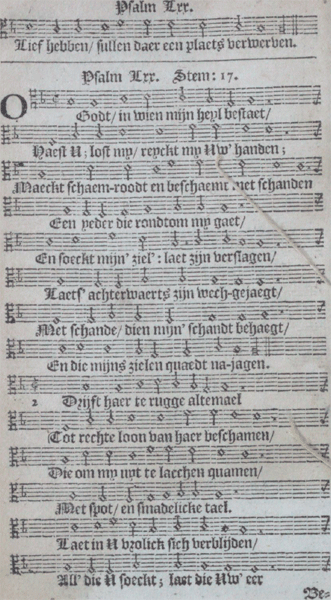 Psalm Lxx.
Lief hebben/ sullen daer een plaets verwerven.
Psalm Lxx. Stem: 17.
O Godt/ in wien mijn heyl bestaet/
Haest U; lost my/ reyckt my Uw' handen;
Maeckt schaem-roodt en beschaemt met schanden
Een yeder die rondtom my gaet/
En soeckt mijn' ziel': laet zijn verslagen/
Laets' achterwaerts zijn wech-gejaegt/
Met schande/ dien mijn' schandt behaegt/
En die mijns zielen quaedt na-jagen.
2 Drijft haer te rugge altemael
Tot rechte loon van haer beschamen/
Die om my uyt te lacchen quamen/
Met spot/ en smadelicke tael.
Laet in U vrolick sich verblijden/
All' die U soeckt; last die Uw' eer
Be-